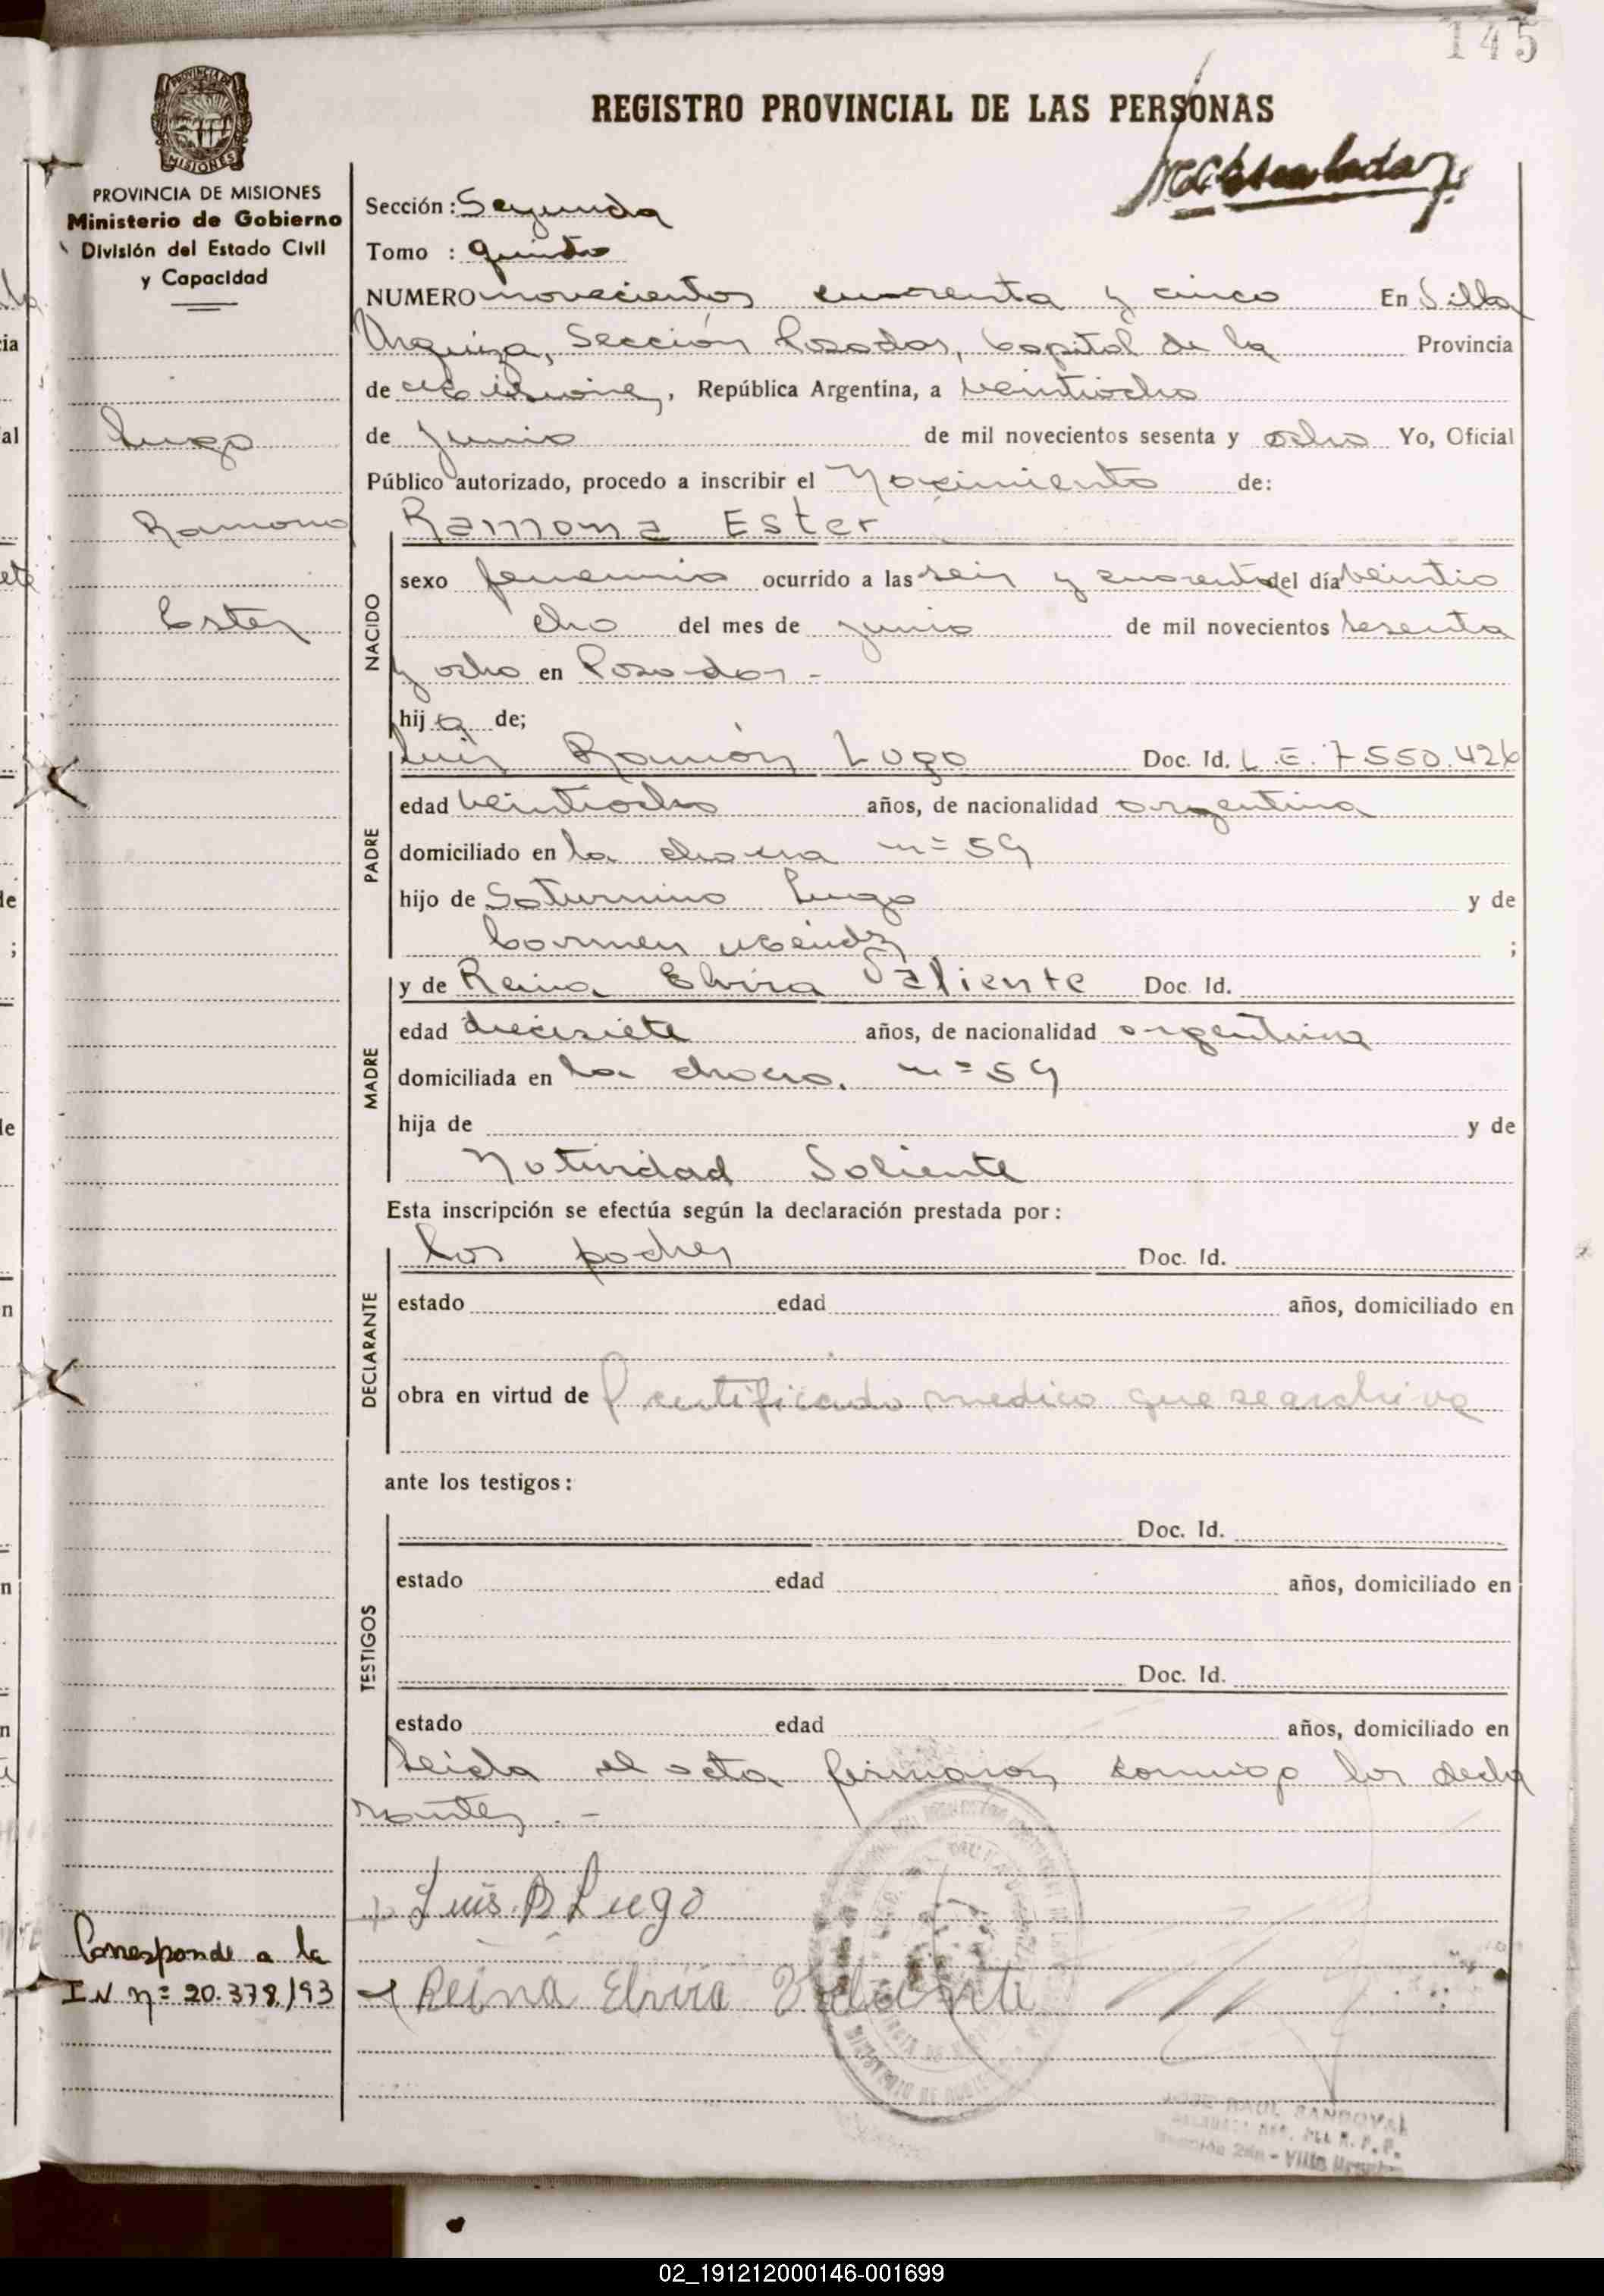 145
PROVINCIA DE
MISIONES
REGISTRO PROVINCIAL DE LAS PERSONAS
PROVINCIA DE MISIONES
Ministerio de Gobierno
División del Estado Civil
y Capacidad
Sección: Segunda
Tomo : quinto
NUMERO novecientos cuarenta y cinco En Villa
Urquiza, Sección Posadas, Capital de la Provincia
de Misiones, República Argentina, a veintiocho
de junio de mil novecientos sesenta y ocho Yo, Oficial
Público autorizado, procedo a inscribir el Nacimiento de:
Lugo
Ramona
Ester
NACIDO
Ramona Ester
sexo femenino ocurrido a las seis y cuarenta del día veintio
cho del mes de junio de mil novecientos sesenta
y ocho en Posadas -
hija de;
PADRE
Luis Ramón Lugo Doc. Id. L.E. 7.550.426
edad veintiocho años, de nacionalidad argentina
domiciliado en la chacra n=59
hijo de Saturnino Lugo y de
Carmen ;
MADRE
y de Reina Elvira Valiente Doc. Id.
edad diecisiete años, de nacionalidad argentina
domiciliada en la chacra. n=59
hija de y de
Natividad Valiente
Esta inscripción se efectúa según la declaración prestada por:
DECLARANTE
los padres Doc. Id.
estado edad años, domiciliado en
obra en virtud de certificado medico que se archiva
ante los testigos:
TESTIGOS
Doc. Id.
estado edad años, domiciliado en
Doc. Id.
estado edad años, domiciliado en
Leida el acta firmaron conmigo los decla
rantes. -
Luis R Lugo
Reina Elvira Valiente
Corresponde a la
I.N. n= 20.378/93
JOSE RAUL SANDOVAL
02_191212000146-001699